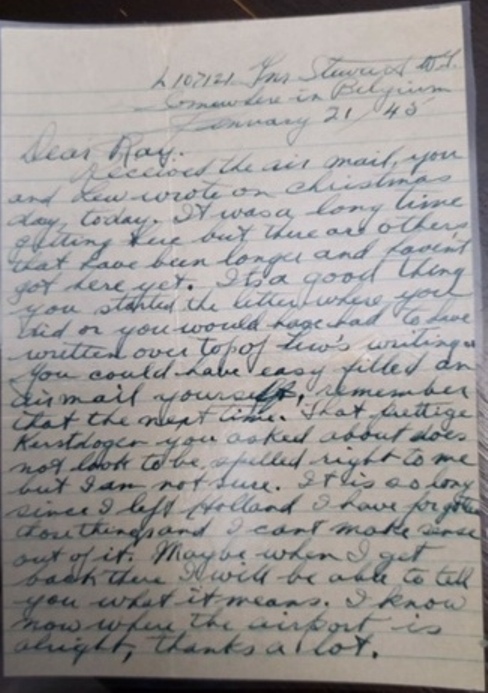 L107121 Gnr Stewart W.J.
Somewhere in Belgium
January 21/45
Dear Ray.
Received the air mail, you
and Lew wrote on Christmas
day, today. It was a long time
getting here but there are others
that have been longer and haven't
got here yet. Its a good thing
you started the letter where you
did or you would have had to have
written over top of Lew's writing.
You could have easy filled an
airmail yourself, remember
that the next time. That prettige
Kerstdagen you asked about does
not look to be spelled right to me
but I am not sure. It is so long
since I left Holland I have forgotten
those things and I cant make sense
out of it. Maybe when I get
back there I will be able to tell
you what it means. I know
now where the airport is
alright, thanks a lot.